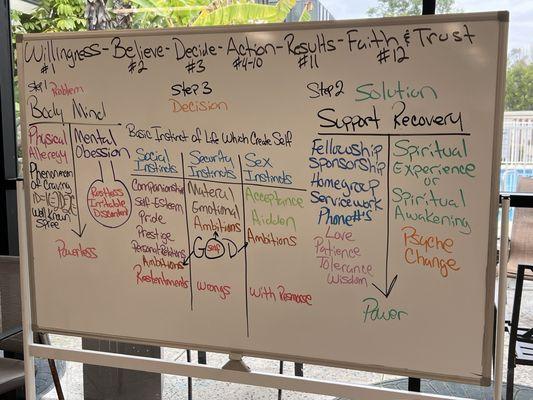 Willingness - Believe - Decide - Action - Results - Faith & Trust
#1 #2 #3 #4-10 #11 #12
Step 1 Problem
Body Mind
Physical Allergy
Phenomenon of Craving
Well Known Spree
Mental Obsession
Restless
Irritable
Discontent
Powerless
Step 3
Decision
Basic Instinct of Life Which Create Self
Social Instincts
Companionship
Self-Esteem
Pride
Prestige
Personal Relations
Ambitions
Resentments
Security Instincts
Material
Emotional
Ambitions
GOD
Self
Wrongs
Sex Instincts
Acceptance
Hidden
Ambitions
With Remorse
Step 2 Solution
Support Recovery
Fellowship
Sponsorship
Homegroup
Servicework
Phone #'s
Love
Patience
Tolerance
Wisdom
Spiritual
Experience
or
Spiritual
Awakening
Psyche
Change
Power